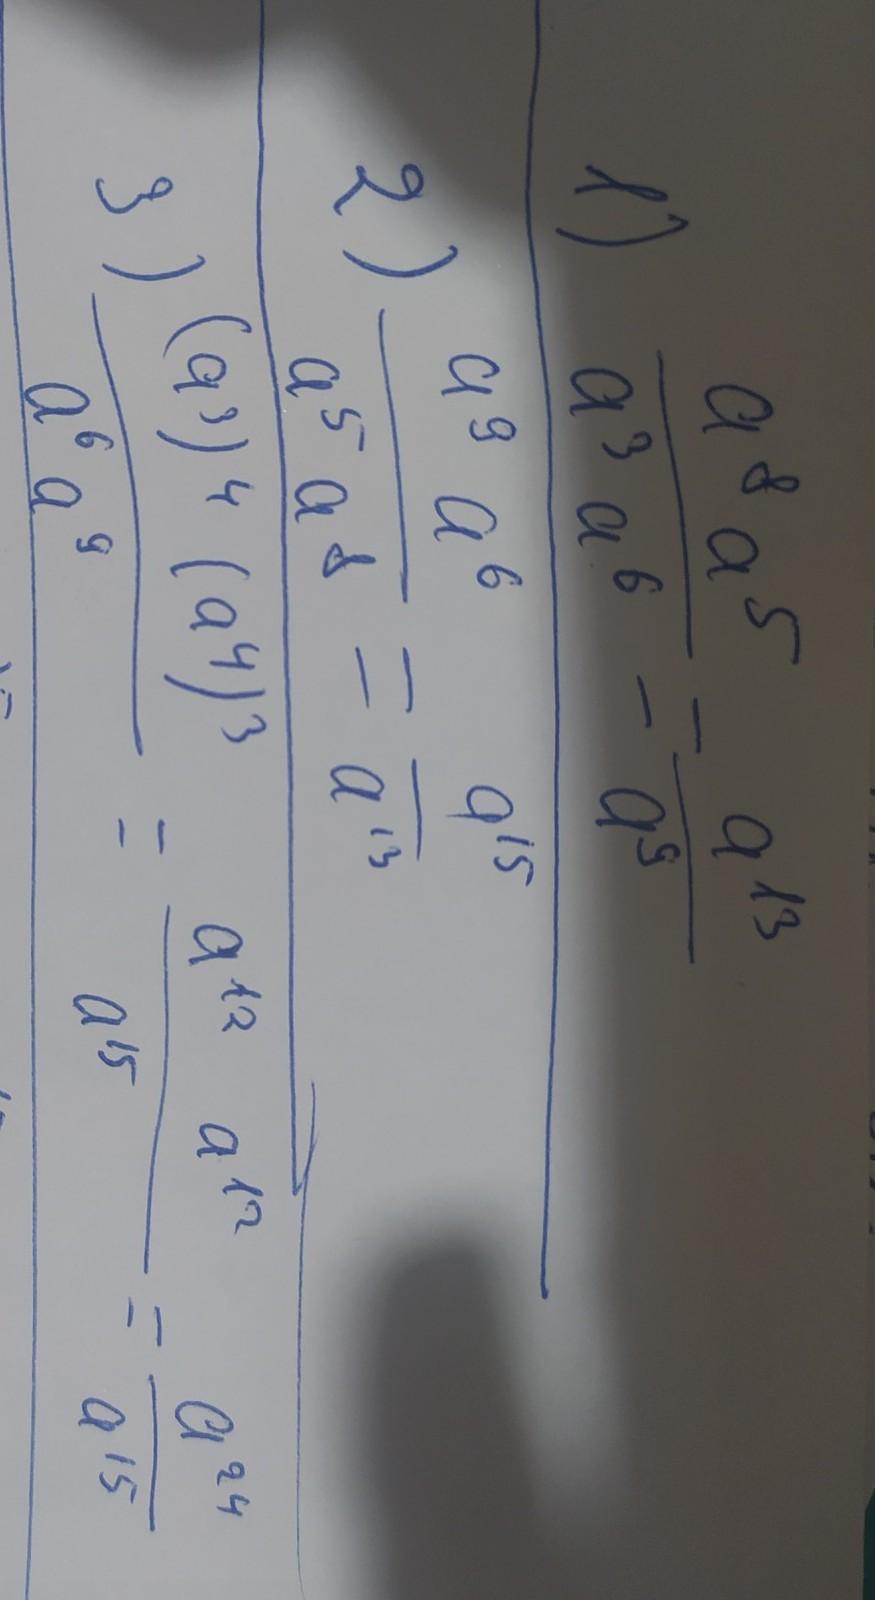 1) a⁸ a⁵ / a³ a⁶ = a¹³ / a⁹
2) a⁹ a⁶ / a⁵ a⁸ = a¹⁵ / a¹³
3) (a³)⁴ (a⁴)³ / a⁶ a⁹ = a¹² a¹² / a¹⁵ = a²⁴ / a¹⁵